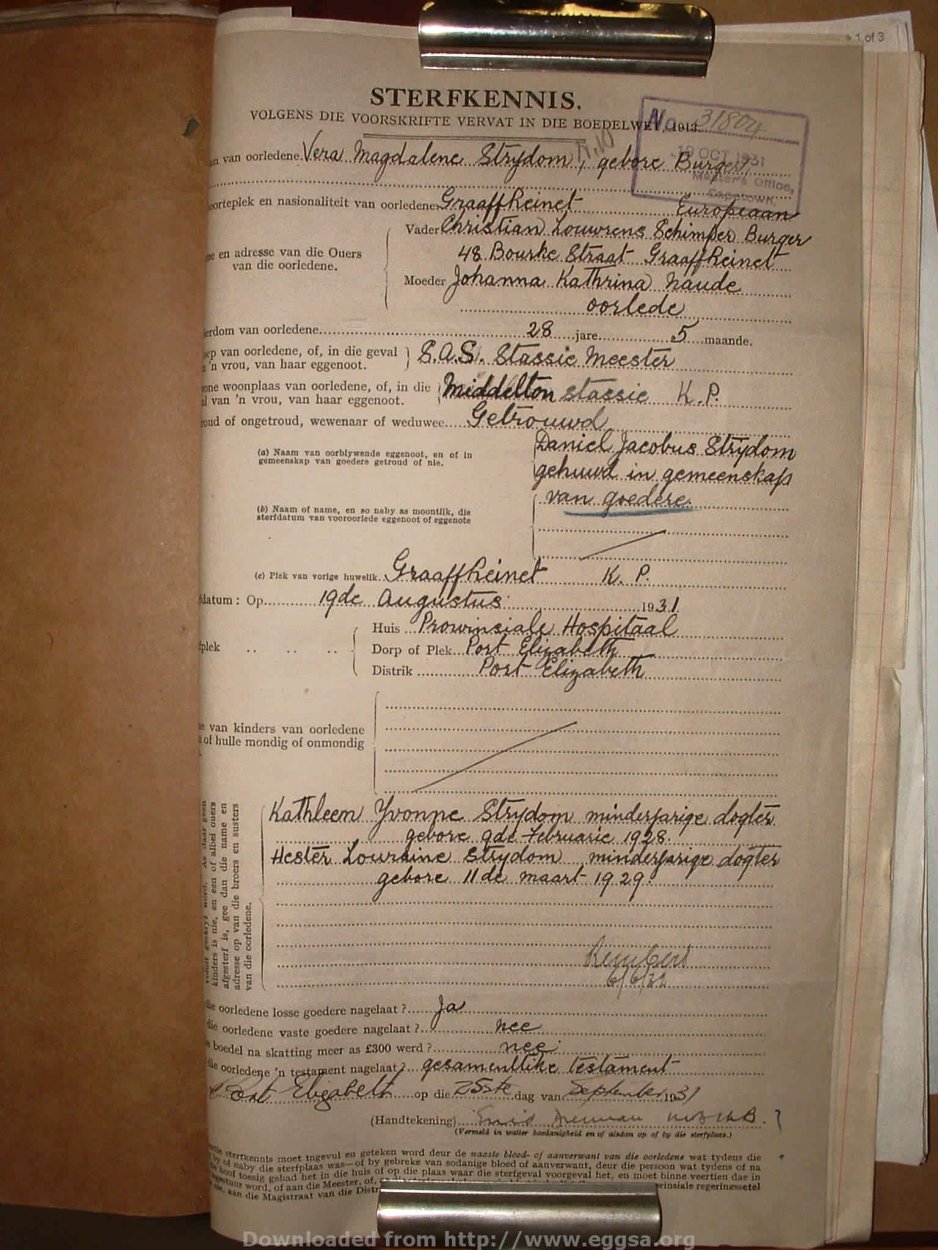 1 of 3
STERFKENNIS.
VOLGENS DIE VOORSKRIFTE VERVAT IN DIE BOEDELWET, 1913.
No. 31804
19 OCT 1931
Master's Office,
Capetown.
van oorledene Vera Magdalene Strydom, gebore Burger
oorteplek en nasionaliteit van oorledene Graaff Reinet Europeaan
Vader Christian Louwrens Schimper Burger
en adresse van die Ouers
van die oorledene.
48 Bourke Straat Graaff Reinet
Moeder Johanna Kathrina Naude
oorlede
erdom van oorledene 28 jare 5 maande.
ep van oorledene, of, in die geval
'n vrou, van haar eggenoot.
S.A.S. Stassie Meester
one woonplaas van oorledene, of, in die
al van 'n vrou, van haar eggenoot.
Middelton stassie K.P.
roud of ongetroud, wewenaar of weduwee Getrouwd
(a) Naam van oorblywende eggenoot, en of in
gemeenskap van goedere getroud of nie.
Daniel Jacobus Strydom
gehuwd in gemeenskap
van goedere.
(b) Naam of name, en so naby as moontlik, die
sterfdatum van vooroorlede eggenoot of eggenote
(c) Plek van vorige huwelik. Graaff Reinet K. P.
datum: Op 19de Augustus 1931
Huis Prowinsiale Hospitaal
plek Dorp of Plek Port Elizabeth
Distrik Port Elizabeth
van kinders van oorledene
of hulle mondig of onmondig
kinders is nie, en een of albei ouers
afgesterf is, gee dan die name en
adresse op van die broers en susters
van die oorledene.
Kathleen Yvonne Strydom minderjarige dogter
gebore 9de Februarie 1928
Hester Louraine Strydom minderjarige dogter
gebore 11de Maart 1929.
die oorledene losse goedere nagelaat? Ja
die oorledene vaste goedere nagelaat? nee
boedel na skatting meer as £300 werd? nee
die oorledene 'n testament nagelaat? gesamentlike testament
Port Elizabeth op die 25ste dag van September 1931
(Handtekening)
(Vermeld in watter hoedanigheid en of aldan op of by die sterfplaas.)
sterfkennis moet ingevul en geteken word deur de naaste bloed- of aanverwant van die oorledene wat tydens die
of naby die sterfplaas was—of by gebreke van sodanige bloed of aanverwant, deur die persoon wat tydens of na
hoof toesig gehad het in die huis of op die plaas waar die sterfgeval voorgeval het, en moet binne veertien dae in
word, of aan die Meester, of, vinsiale regerinsetel
aan die Magistraat van die Distr
Downloaded from http://www.eggsa.org